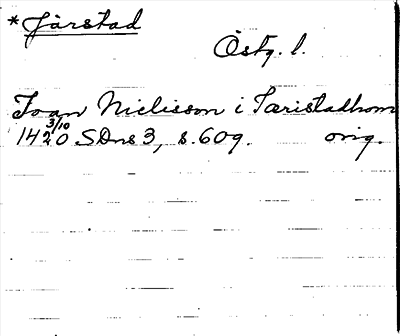 *Järstad
Östg. l.
Joan Niclisson i Tæristadhom
14 3/10 20 SDns 3, s. 609. orig.